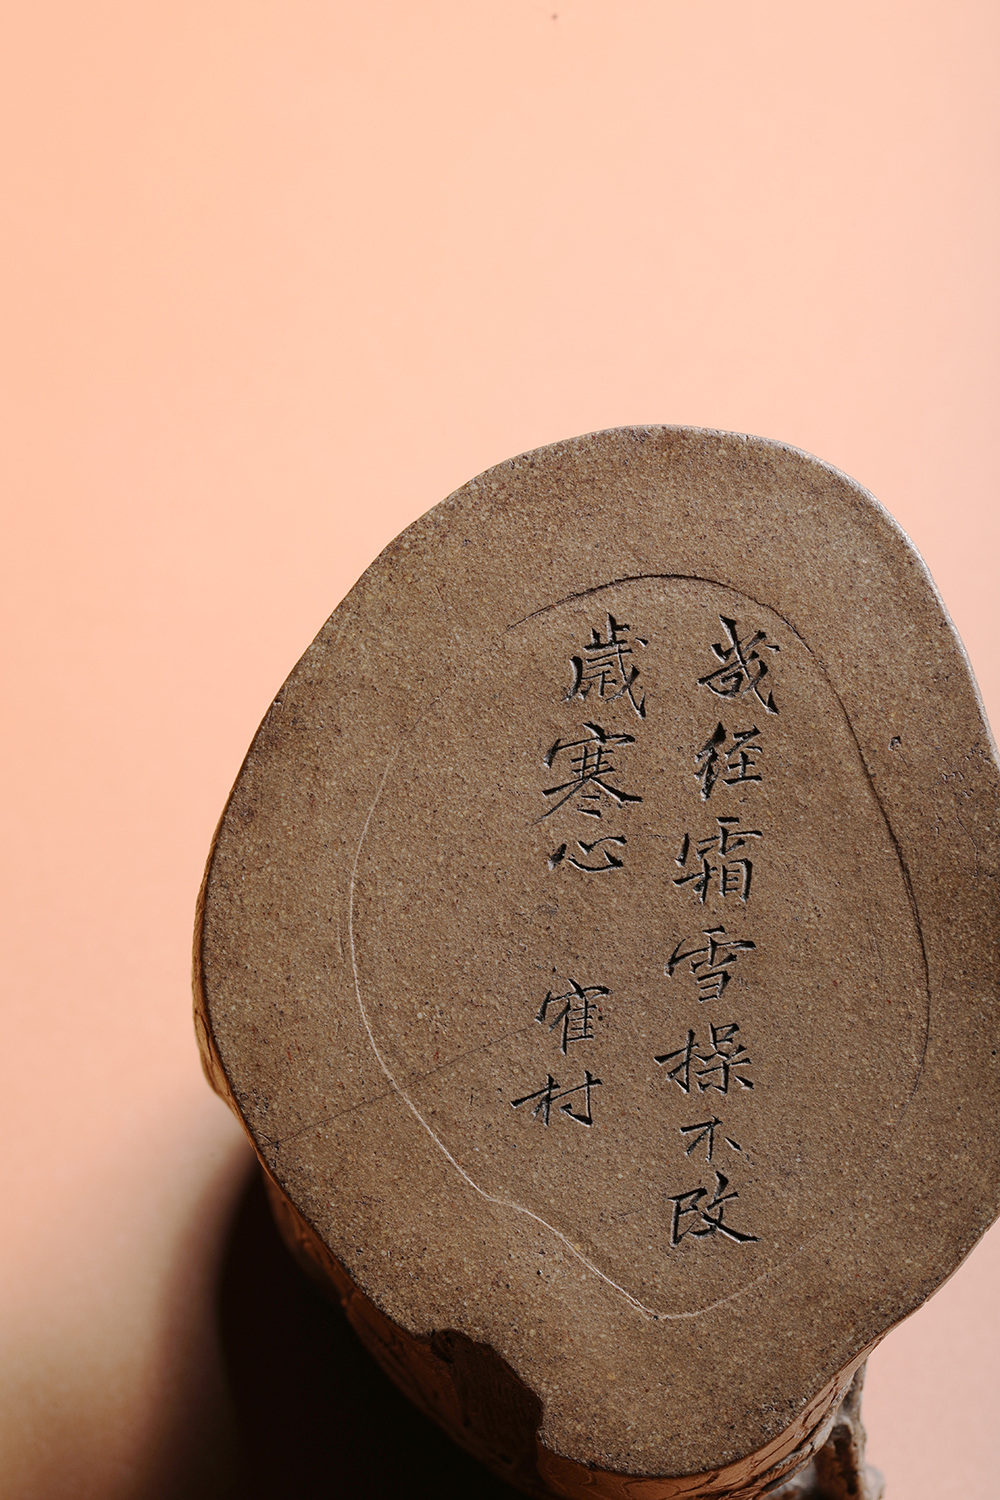 幾經霜雪操不改
歲寒心 寉村